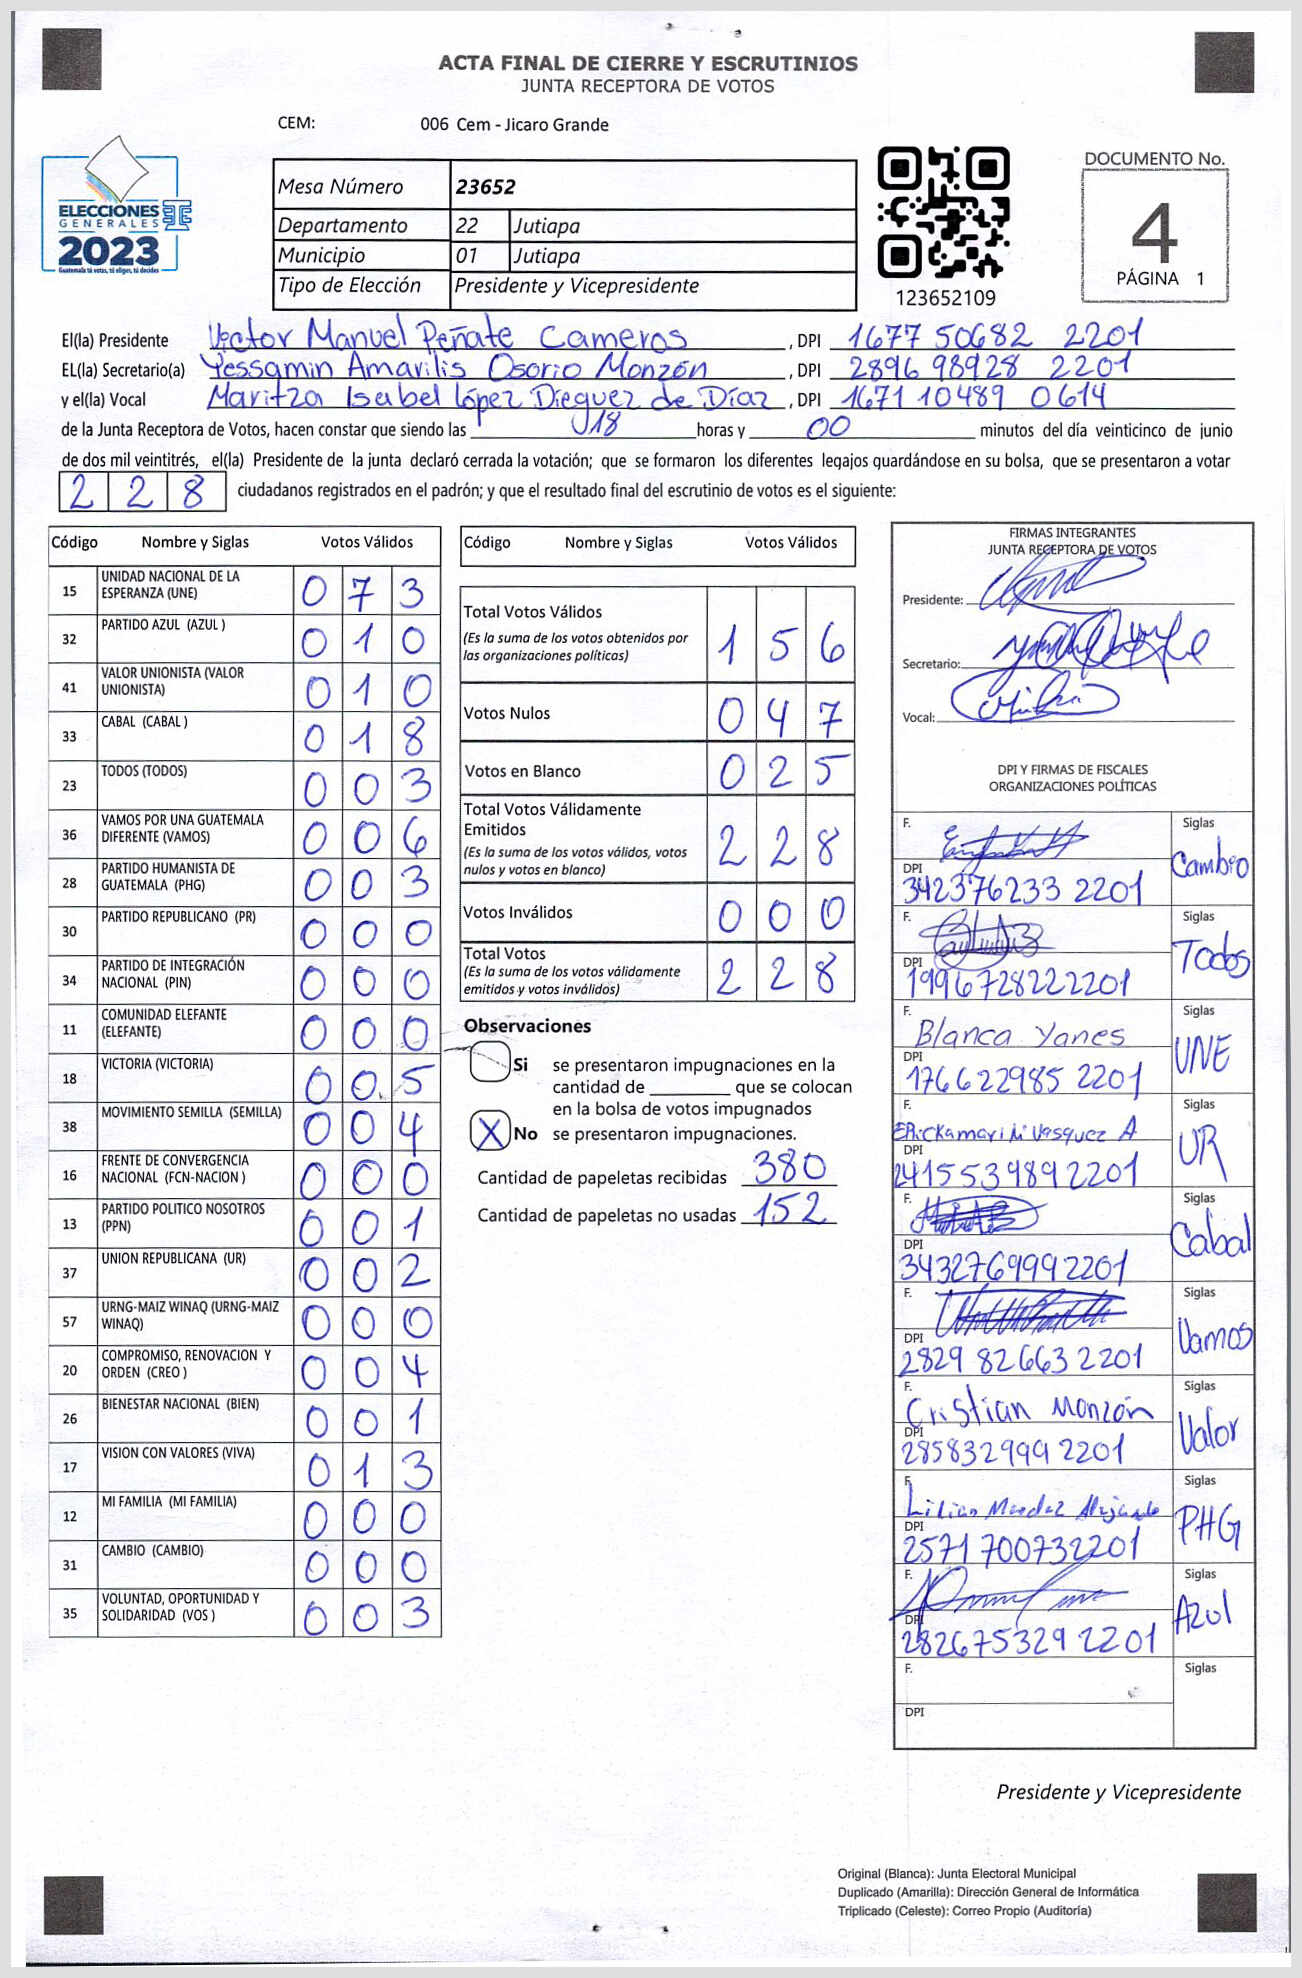 ACTA FINAL DE CIERRE Y ESCRUTINIOS
JUNTA RECEPTORA DE VOTOS
CEM: 006 Cem - Jicaro Grande
ELECCIONES
GENERALES
2023
Guatemala tú votas, tú eliges, tú decides
Mesa Número 23652
Departamento 22 Jutiapa
Municipio 01 Jutiapa
Tipo de Elección Presidente y Vicepresidente
123652109
DOCUMENTO No.
4
PÁGINA 1
El(la) Presidente Victor Manuel Peñate Cameros , DPI 1677 50682 2201
EL(la) Secretario(a) Yessamin Amarilis Osorio Monzón , DPI 2896 98928 2201
y el(la) Vocal Maritza Isabel López Dieguez de Díaz , DPI 1671 10489 0614
de la Junta Receptora de Votos, hacen constar que siendo las 18 horas y 00 minutos del día veinticinco de junio
de dos mil veintitrés, el(la) Presidente de la junta declaró cerrada la votación; que se formaron los diferentes legajos guardándose en su bolsa, que se presentaron a votar
228 ciudadanos registrados en el padrón; y que el resultado final del escrutinio de votos es el siguiente:
Código Nombre y Siglas Votos Válidos
15 UNIDAD NACIONAL DE LA ESPERANZA (UNE) 0 7 3
32 PARTIDO AZUL (AZUL ) 0 1 0
41 VALOR UNIONISTA (VALOR UNIONISTA) 0 1 0
33 CABAL (CABAL ) 0 1 8
23 TODOS (TODOS) 0 0 3
36 VAMOS POR UNA GUATEMALA DIFERENTE (VAMOS) 0 0 6
28 PARTIDO HUMANISTA DE GUATEMALA (PHG) 0 0 3
30 PARTIDO REPUBLICANO (PR) 0 0 0
34 PARTIDO DE INTEGRACIÓN NACIONAL (PIN) 0 0 0
11 COMUNIDAD ELEFANTE (ELEFANTE) 0 0 0
18 VICTORIA (VICTORIA) 0 0 5
38 MOVIMIENTO SEMILLA (SEMILLA) 0 0 4
16 FRENTE DE CONVERGENCIA NACIONAL (FCN-NACION ) 0 0 0
13 PARTIDO POLITICO NOSOTROS (PPN) 0 0 1
37 UNION REPUBLICANA (UR) 0 0 2
57 URNG-MAIZ WINAQ (URNG-MAIZ WINAQ) 0 0 0
20 COMPROMISO, RENOVACION Y ORDEN (CREO ) 0 0 4
26 BIENESTAR NACIONAL (BIEN) 0 0 1
17 VISION CON VALORES (VIVA) 0 1 3
12 MI FAMILIA (MI FAMILIA) 0 0 0
31 CAMBIO (CAMBIO) 0 0 0
35 VOLUNTAD, OPORTUNIDAD Y SOLIDARIDAD (VOS ) 0 0 3
Código Nombre y Siglas Votos Válidos
Total Votos Válidos 1 5 6
(Es la suma de los votos obtenidos por
las organizaciones políticas)
Votos Nulos 0 4 7
Votos en Blanco 0 2 5
Total Votos Válidamente
Emitidos 2 2 8
(Es la suma de los votos válidos, votos
nulos y votos en blanco)
Votos Inválidos 0 0 0
Total Votos 2 2 8
(Es la suma de los votos válidamente
emitidos y votos inválidos)
Observaciones
Si se presentaron impugnaciones en la
cantidad de ________ que se colocan
en la bolsa de votos impugnados
X No se presentaron impugnaciones.
Cantidad de papeletas recibidas 380
Cantidad de papeletas no usadas 152
FIRMAS INTEGRANTES
JUNTA RECEPTORA DE VOTOS
Presidente:
Secretario:
Vocal:
DPI Y FIRMAS DE FISCALES
ORGANIZACIONES POLÍTICAS
F. Siglas Cambio
DPI 342376233 2201
F. Siglas Todos
DPI 1996728222201
F. Blanca Yanes Siglas UNE
DPI 176622985 2201
F. Vasquez A Siglas UR
DPI 2415539892201
F. Siglas Cabal
DPI 3432769992201
F. Siglas Vamos
DPI 2829 82663 2201
F. Cristian Monzón Siglas Valor
DPI 285832999 2201
F. Lilian Siglas PHG
DPI 2571700732201
F. Siglas Azul
DPI 282675329 2201
F. Siglas
DPI
Presidente y Vicepresidente
Original (Blanca): Junta Electoral Municipal
Duplicado (Amarilla): Dirección General de Informática
Triplicado (Celeste): Correo Propio (Auditoría)